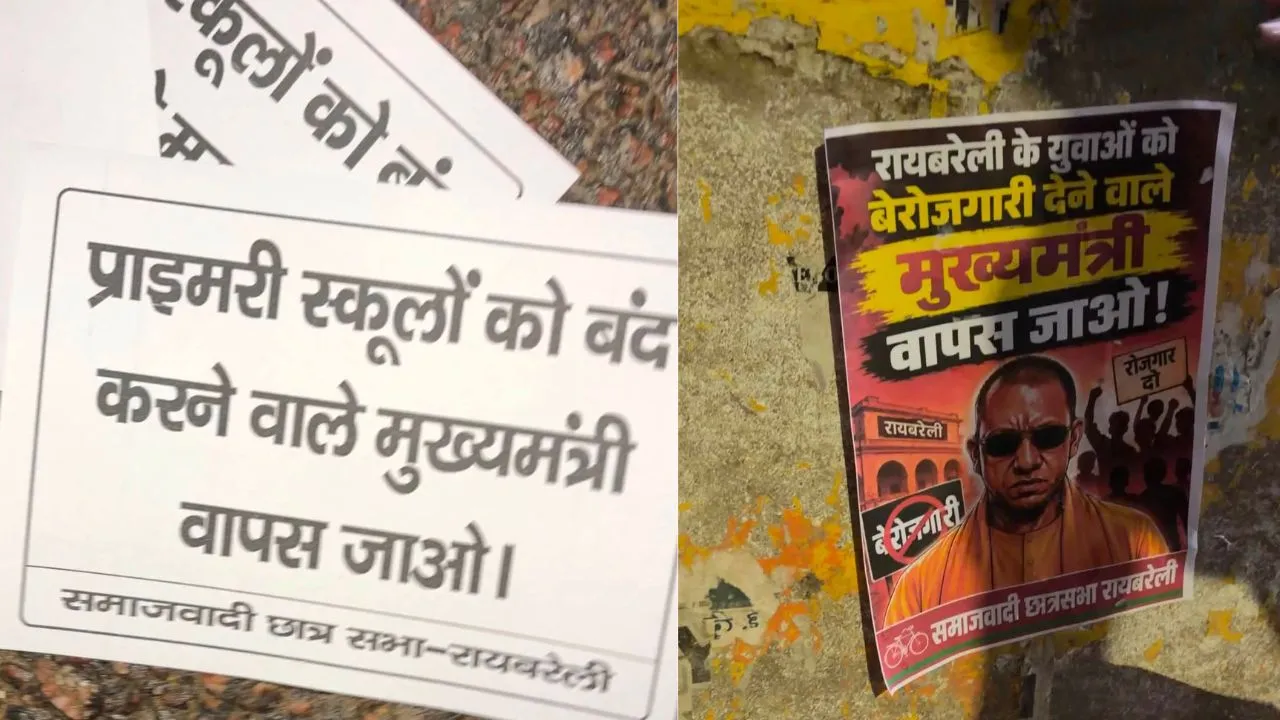 स्कूलों को बं
प्राइमरी स्कूलों को बंद
करने वाले मुख्यमंत्री
वापस जाओ।
समाजवादी छात्र सभा-रायबरेली
रायबरेली के युवाओं को
बेरोजगारी देने वाले
मुख्यमंत्री
वापस जाओ!
रोज़गार
दो
रायबरेली
बेरोजगारी
समाजवादी छात्रसभा रायबरेली